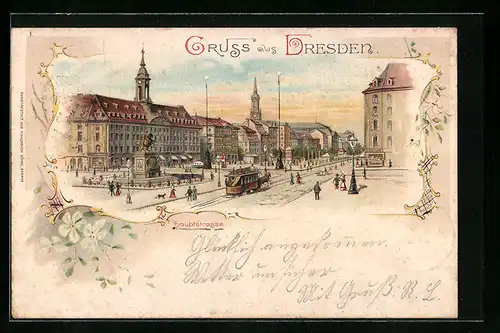 GRUSS aus DRESDEN.
Hauptstrasse.
Glücklich angekommen.
Wetter unsicher.
Mit Gruß. R. L.